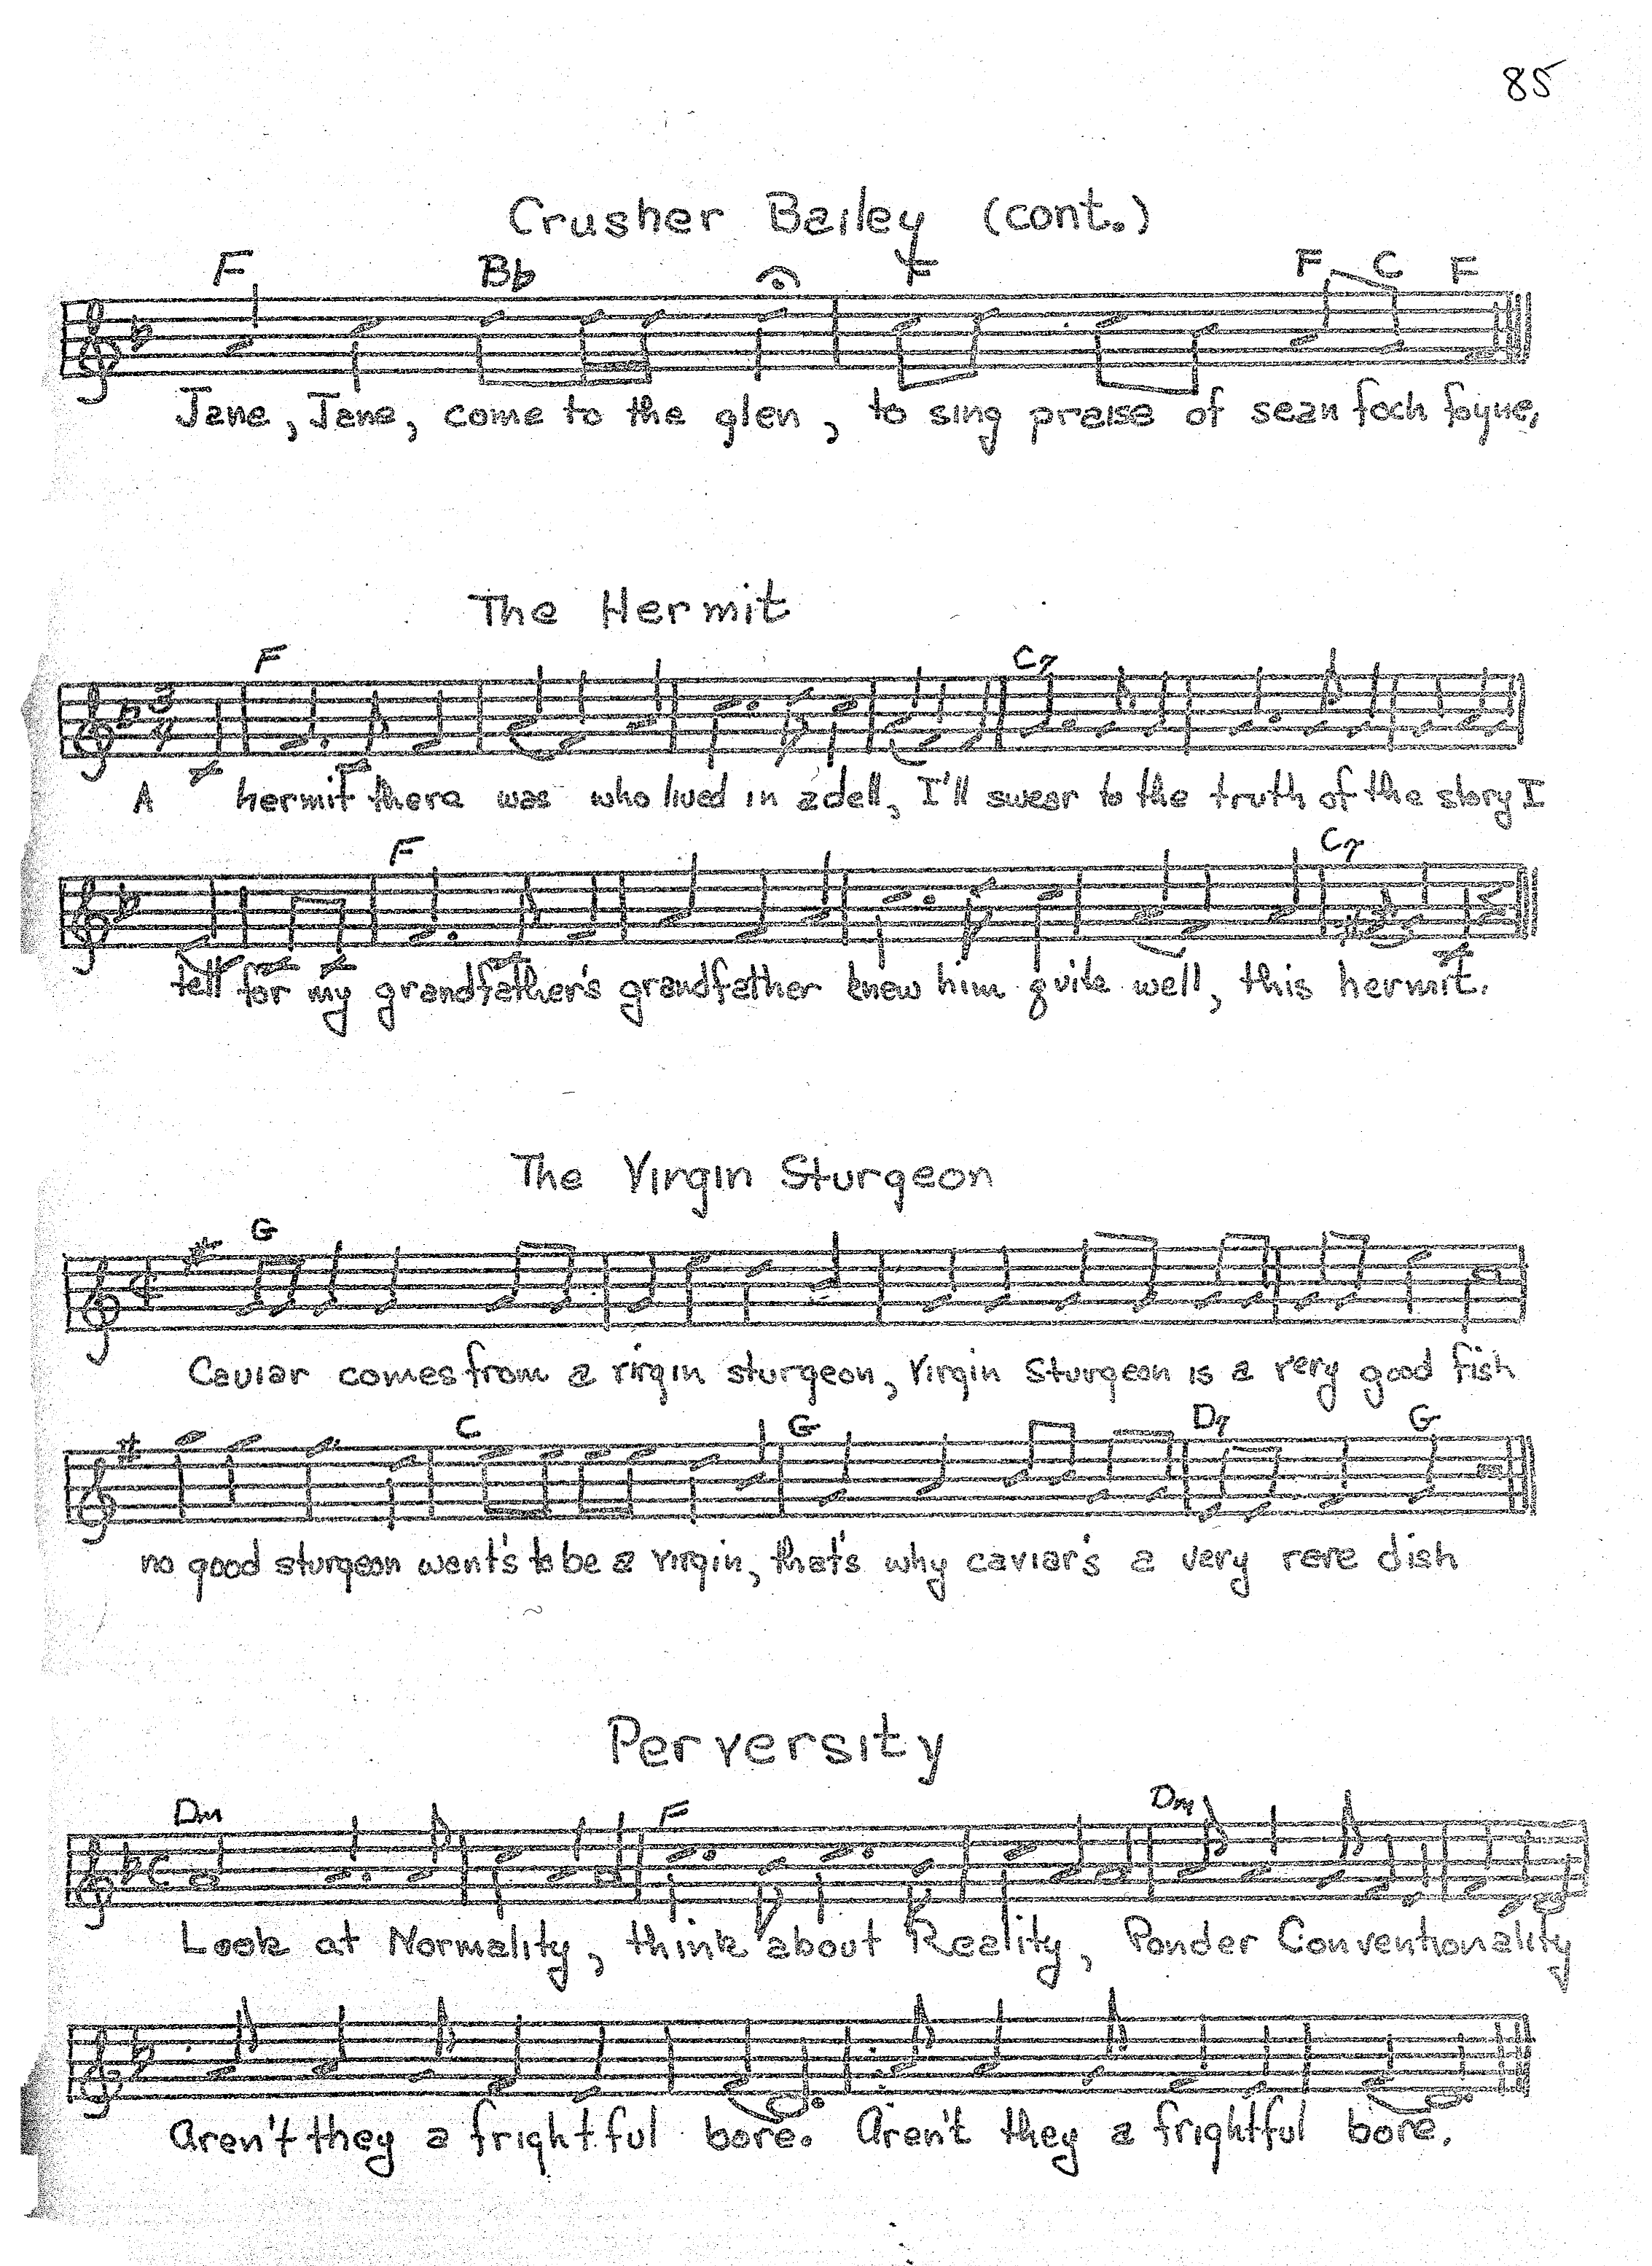 85
Crusher Bailey (cont.)
F Bb F F C F
Jane, Jane, come to the glen, to sing praise of sean foch foyne,
The Hermit
F C7
A hermit there was who lived in a dell, I'll swear to the truth of the story I
F C7
tell for my grandfather's grandfather knew him quite well, this hermit.
The Virgin Sturgeon
G
Caviar comes from a virgin sturgeon, Virgin Sturgeon is a very good fish
C G D7 G
no good sturgeon want's to be a virgin, that's why caviar's a very rare dish
Perversity
Dm F Dm
Look at Normality, think about Reality, Ponder Conventionality
Aren't they a frightful bore. Aren't they a frightful bore.